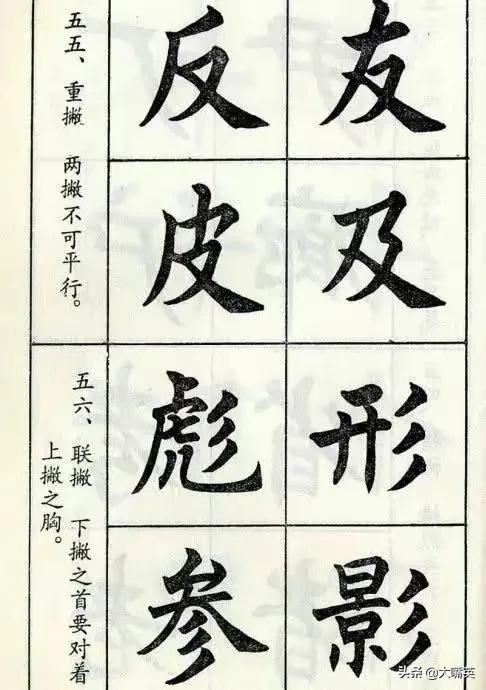 五五、重撇 两撇不可平行。
友
反
及
皮
五六、联撇 下撇之首要对着
上撇之胸。
形
彪
影
参
头条 @大嘴英